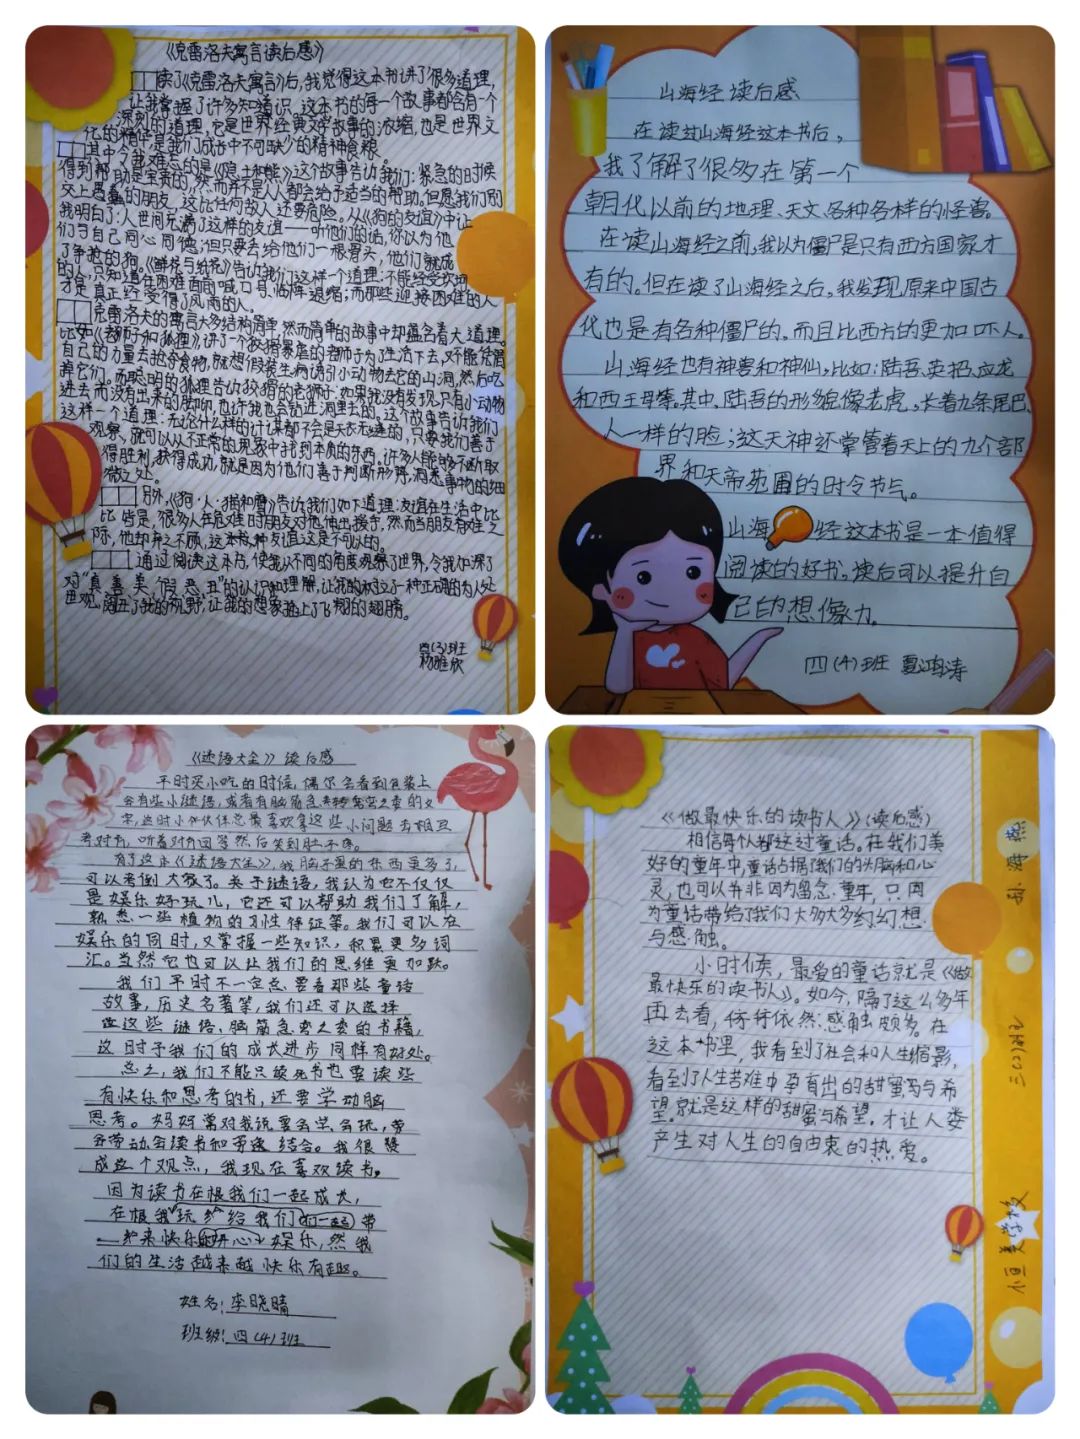 《克雷洛夫寓言读后感》
读了《克雷洛夫寓言》后,我觉得这本书讲了很多道理,
让我掌握了许多知识,这本书的每一个故事都含有一个
深刻的道理,它是世界经典文学故事的浓缩,也是世界文
化的精华,是我们成长中不可缺少的精神食粮。
其中令我难忘的是《隐士和熊》这个故事告诉我们:紧急的时候
得到帮助是宝贵的,然而并不是人人都会给予适当的帮助。但愿我们别
交上愚蠢的朋友,这比任何敌人还要危险。从《狗的友谊》中让
我明白了:人世间充满了这样的友谊——听他们的话,你以为他
们与自己同心同德;但只要丢给他们一根骨头,他们就成
了争抢的狗。《鲜花与纸花》告诉我们这样一个道理:不能经受
的人,只知道在困难面前喊口号,临阵退缩;而那些迎接困难的人
才是真正经受得了风雨的人。
克雷洛夫的寓言大多结构简单,然而简单的故事中却蕴含着大道理。
比如《老狮子和狐狸》,讲了一个
自己的力量去抢夺食物,就想假装生病诱引小动物去它的山洞,然后吃
掉它们。而聪明的狐狸告诉狡猾的老狮子:如果我没有发现,只有小动物
进去而没有出来的脚印,也许我也会钻进洞里去的。这个故事告诉我们
这样一个道理:无论什么样的计谋都不会是天衣无缝的,只要我们善于
观察,就可以从不正常的现象中找到本质的东西,许多人能够不断取
得胜利,获得成功,就是因为他们善于判断形势,洞悉事物的细
微之处。
另外,《狗·人·猫和鹰》告诉我们如下道理:友谊在生活中比
比皆是,很多人在危难时朋友对他伸出援手,然而当朋友有难之
际,他却弃之不顾,这种友谊这是不可以的。
通过阅读这本书,使我从不同的角度观察了世界,令我加深了
对“真、善、美、假、恶、丑”的认识和理解,让我的树立了一种正确的为人处
世观,阔开了我的视野,让我的想象插上了飞翔的翅膀。
四(3)班
杨雅欣
山海经读后感
在读过山海经这本书后,
我了解了很多在第一个
朝代以前的地理、天文、各种各样的怪兽。
在读山海经之前,我以为僵尸是只有西方国家才
有的。但在读了山海经之后,我发现原来中国古
代也是有各种僵尸的,而且比西方的更加吓人。
山海经也有神兽和神仙,比如:陆吾、英招、应龙
和西王母等。其中,陆吾的形貌像老虎,长着九条尾巴,
人一样的脸;这天神还掌管着天上的九个部
界和天帝苑囿的时令节气。
山海经这本书是一本值得
阅读的好书。读后可以提升自
己的想像力。
四(4)班 夏鸿涛
《谜语大全》读后感
平时买小吃的时候,偶尔会看到包装上
会有些小谜语,或者有脑筋急转弯之类的文
字,这时小伙伴总最喜欢拿这些小问题去相互
考对方,听着对方回答然后笑到肚子疼。
有了这本《谜语大全》,我脑子里的东西更多了,
可以考倒大家了。关于谜语,我认为它不仅仅
是娱乐好玩儿,它还可以帮助我们了解,
熟悉一些植物的习性特征等。我们可以在
娱乐的同时,又掌握一些知识,积累更多词
汇。当然它也可以让我们的思维更加跃。
我们平时不一定总要看那些童话
故事,历史名著等,我们还可以选择
些这些谜语、脑筋急转弯之类的书籍,
这时于我们的成长进步同样有好处。
总之,我们不能只读死书也要读些
有快乐和思考的书,还要学动脑
思考。妈妈常对我说要多学、多玩,劳
我很赞
成这个观点,我现在喜欢读书。
因为读书在根我们一起成长,
在根我玩乡给我们 带
来快乐 娱乐,然我
们的生活越来越快乐有趣。
姓名:李晓晴
班级:四(4)班
《做最快乐的读书人》(读后感)
相信每似都这过童话。在我们美
好的童年中,童话占据了我们的头脑和心
灵,也可以并非因为留念童年,只因
为童话带给了我们大多大多幻想
与感触。
小时候,最爱的童话就是《做
最快乐的读书人》。如今,隔了这么多年
再去看,仔仔依然感触颇多。在
这本书里,我看到了社会和人生缩影,
看到了人生苦难中孕育出的甜蜜与希
望。就是这样的甜蜜与希望,才让人类
产生对人生的自由衷的热爱。
三(1)班
恒美学校